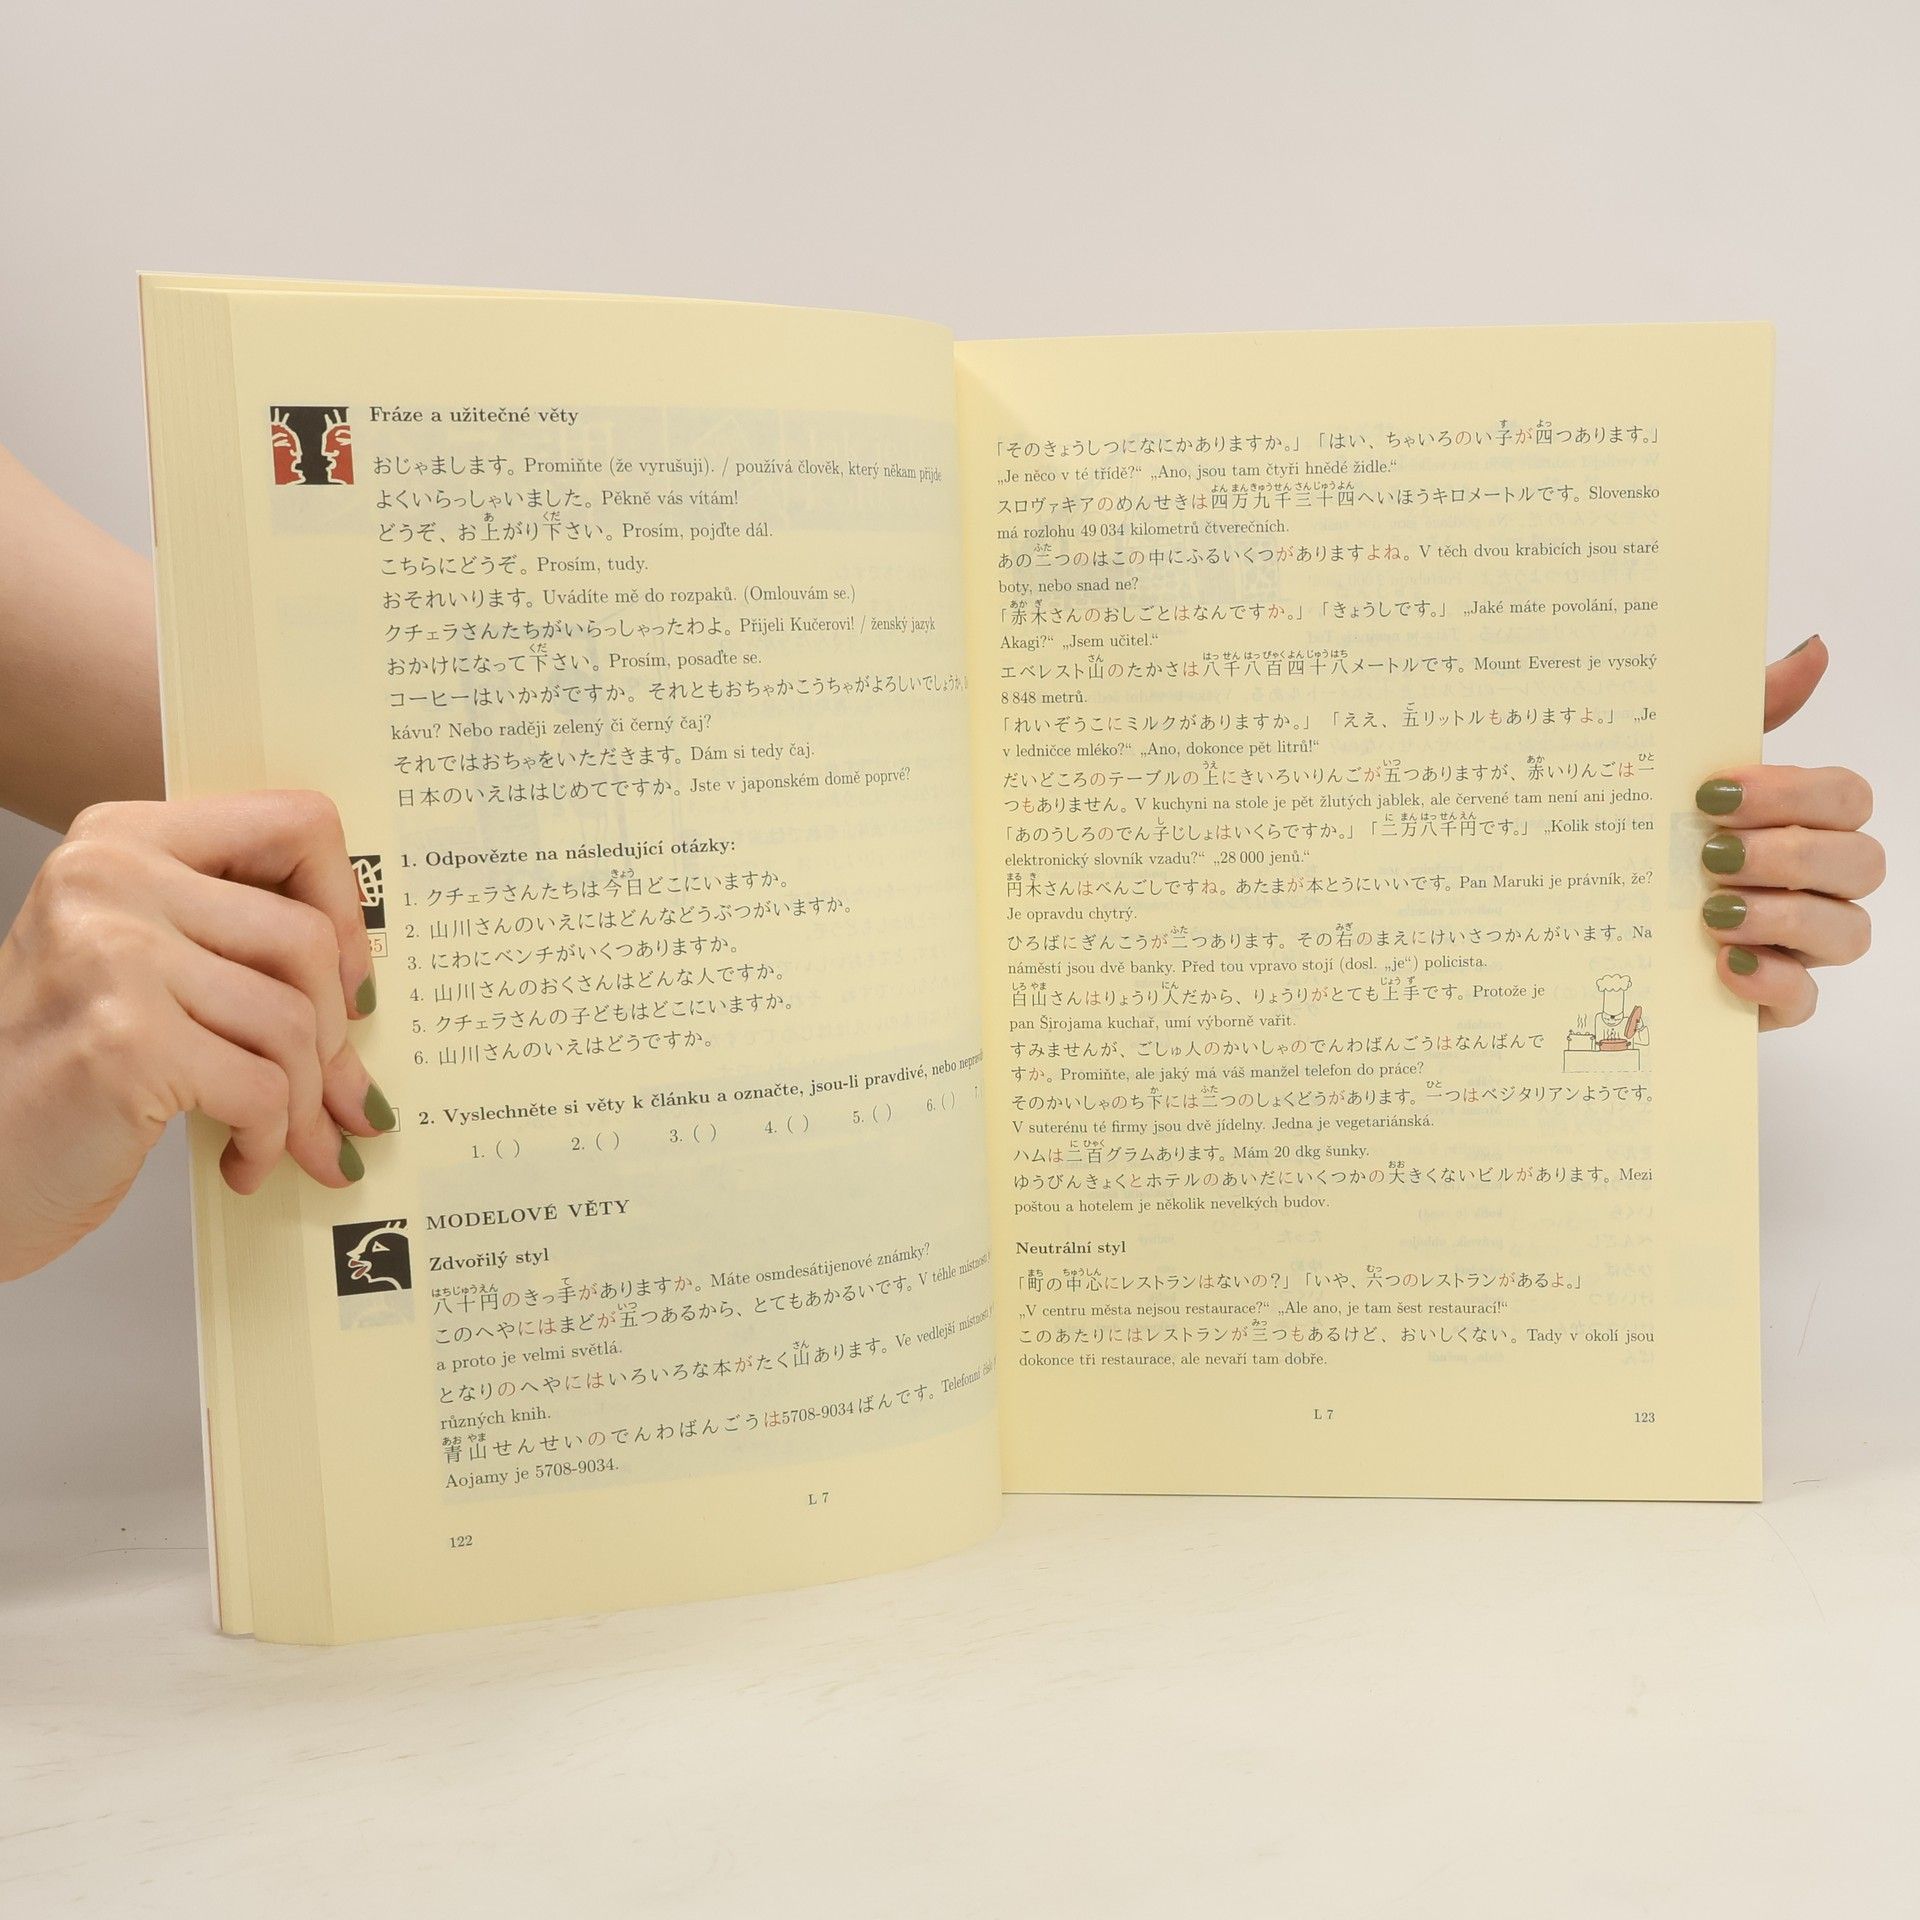 Fráze a užitečné věty
おじゃまします。Promiňte (že vyrušuji). / používá člověk, který někam přijde
よくいらっしゃいました。Pěkně vás vítám!
どうぞ、お上がり下さい。Prosím, pojďte dál.
こちらにどうぞ。Prosím, tudy.
おそれいります。Uvádíte mě do rozpaků. (Omlouvám se.)
クチェラさんたちがいらっしゃったわよ。Přijeli Kučerovi! / ženský jazyk
おかけになって下さい。Prosím, posaďte se.
コーヒーはいかがですか。それともおちゃかこうちゃがよろしいでしょうか。
kávu? Nebo raději zelený či černý čaj?
それではおちゃをいただきます。Dám si tedy čaj.
日本のいえははじめてですか。Jste v japonském domě poprvé?
1. Odpovězte na následující otázky:
1. クチェラさんたちは今日どこにいますか。
2. 山川さんのいえにはどんなどうぶつがいますか。
3. にわにベンチがいくつありますか。
4. 山川さんのおくさんはどんな人ですか。
5. クチェラさんの子どもはどこにいますか。
6. 山川さんのいえはどうですか。
35
2. Vyslechněte si věty k článku a označte, jsou-li pravdivé, nebo
1. ( ) 2. ( ) 3. ( ) 4. ( ) 5. ( ) 6. ( ) 7.
MODELOVÉ VĚTY
Zdvořilý styl
八十円のきっ手がありますか。Máte osmdesátijenové známky?
このへやにはまどが五つあるから、とてもあかるいです。V téhle místnosti
a proto je velmi světlá.
となりのへやにはいろいろな本がたく山あります。Ve vedlejší místnosti
různých knih.
青山せんせいのでんわばんごうは5708-9034ばんです。Telefonní
Aojamy je 5708-9034.
L 7
122
「そのきょうしつになにかありますか。」「はい、ちゃいろのい子が四つあります。」
„Je něco v té třídě?“ „Ano, jsou tam čtyři hnědé židle.“
スロヴァキアのめんせきは四万九千三十四へいほうキロメートルです。Slovensko
má rozlohu 49 034 kilometrů čtverečních.
あの二つのはこの中にふるいくつがありますよね。V těch dvou krabicích jsou staré
boty, nebo snad ne?
「赤木さんのおしごとはなんですか。」「きょうしです。」 „Jaké máte povolání, pane
Akagi?“ „Jsem učitel.“
エベレスト山のたかさは八千八百四十八メートルです。Mount Everest je vysoký
8 848 metrů.
「れいぞうこにミルクがありますか。」「ええ、五リットルもありますよ。」 „Je
v ledničce mléko?“ „Ano, dokonce pět litrů!“
だいどころのテーブルの上にきいろいりんごが五つありますが、赤いりんごは一
つもありません。V kuchyni na stole je pět žlutých jablek, ale červené tam není ani jedno.
「あのうしろのでん子じしょはいくらですか。」「二万八千円です。」 „Kolik stojí ten
elektronický slovník vzadu?“ „28 000 jenů.“
円木さんはべんごしですね。あたまが本とうにいいです。Pan Maruki je právník, že?
Je opravdu chytrý.
ひろばにぎんこうが二つあります。その右のまえにけいさつかんがいます。Na
náměstí jsou dvě banky. Před tou vpravo stojí (dosl. „je“) policista.
白山さんはりょうり人だから、りょうりがとても上手です。Protože je
pan Širojama kuchař, umí výborně vařit.
すみませんが、ごしゅ人のかいしゃのでんわばんごうはなんばんで
すか。Promiňte, ale jaký má váš manžel telefon do práce?
そのかいしゃのち下には二つのしょくどうがあります。一つはベジタリアンようです。
V suterénu té firmy jsou dvě jídelny. Jedna je vegetariánská.
ハムは二百グラムあります。Mám 20 dkg šunky.
ゆうびんきょくとホテルのあいだにいくつかの大きくないビルがあります。Mezi
poštou a hotelem je několik nevelkých budov.
Neutrální styl
「町の中心にレストランはないの?」「いや、六つのレストランがあるよ。」
„V centru města nejsou restaurace?“ „Ale ano, je tam šest restaurací!“
このあたりにはレストランが三つもあるけど、おいしくない。Tady v okolí jsou
dokonce tři restaurace, ale nevaří tam dobře.
L 7
123